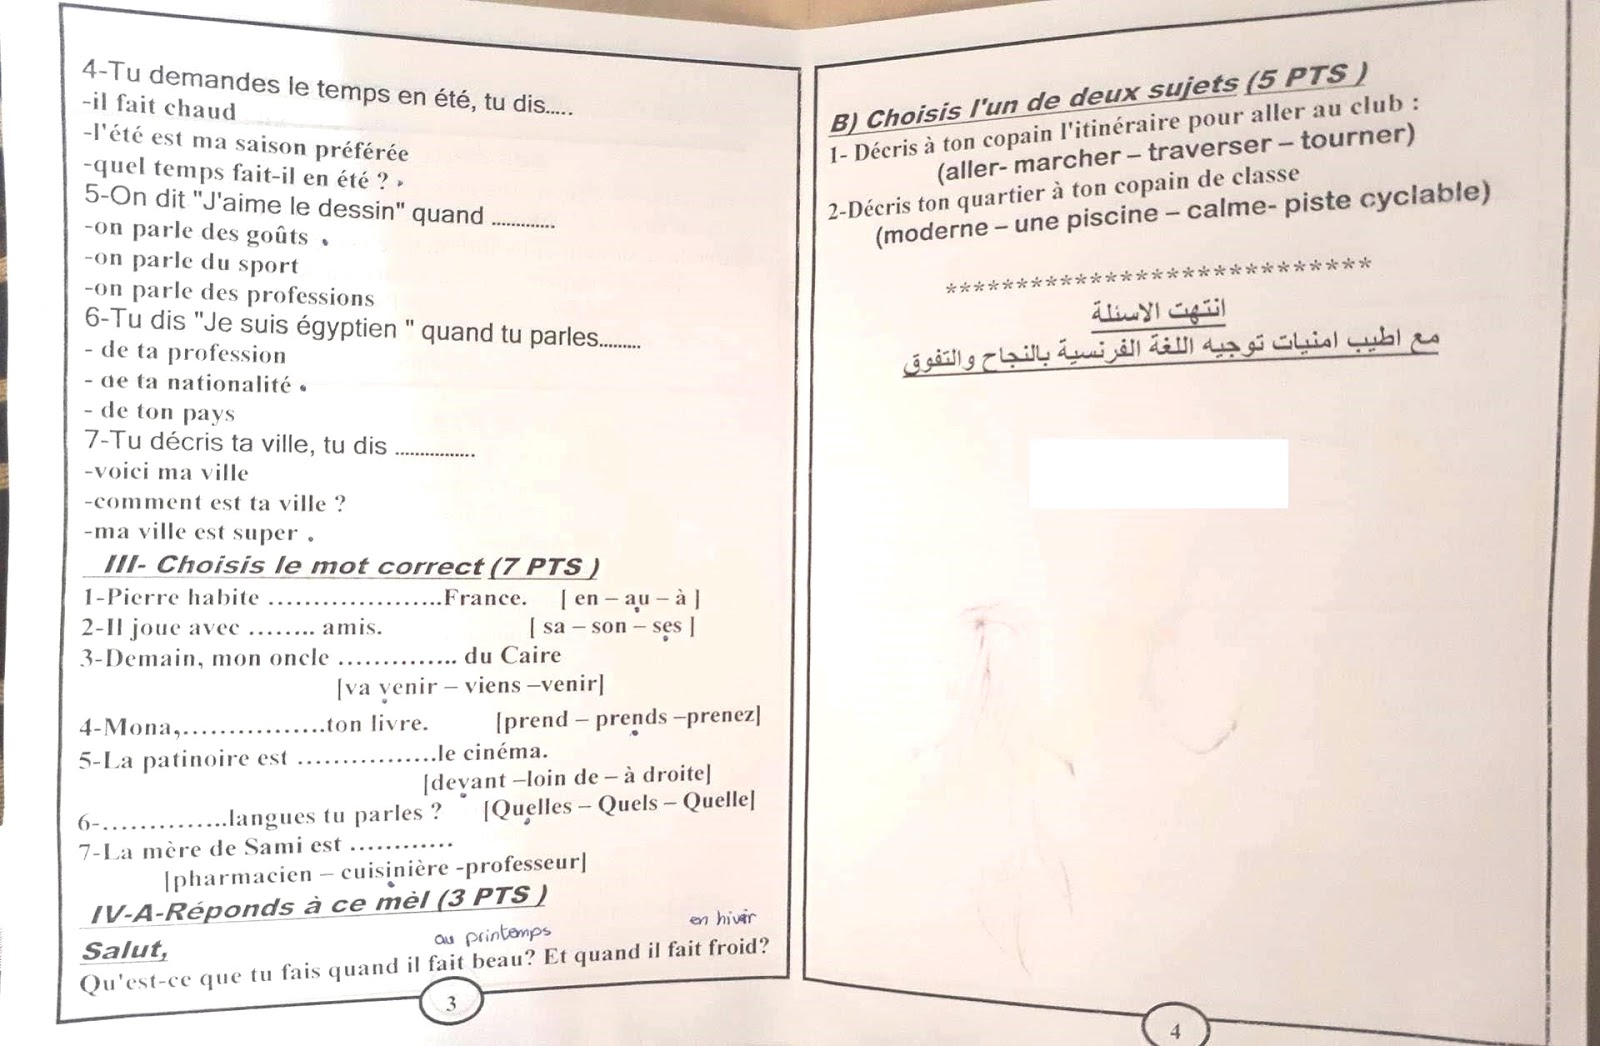 4-Tu demandes le temps en été, tu dis.....
-il fait chaud
-l'été est ma saison préférée
-quel temps fait-il en été ?
5-On dit "J'aime le dessin" quand .............
-on parle des goûts
-on parle du sport
-on parle des professions
6-Tu dis "Je suis égyptien " quand tu parles.........
- de ta profession
- de ta nationalité
- de ton pays
7-Tu décris ta ville, tu dis ................
-voici ma ville
-comment est ta ville ?
-ma ville est super .
III- Choisis le mot correct (7 PTS )
1-Pierre habite ...................France. [ en – au – à ]
2-Il joue avec ........ amis. [ sa – son – ses ]
3-Demain, mon oncle .............. du Caire
[va venir – viens –venir]
4-Mona,................ton livre. [prend – prends –prenez]
5-La patinoire est ................le cinéma.
[devant –loin de – à droite]
6-..............langues tu parles ? [Quelles – Quels – Quelle]
7-La mère de Sami est ............
[pharmacien – cuisinière -professeur]
IV-A-Réponds à ce mèl (3 PTS )
Salut,
au printemps en hiver
Qu'est-ce que tu fais quand il fait beau? Et quand il fait froid?
3
B) Choisis l'un de deux sujets (5 PTS )
1- Décris à ton copain l'itinéraire pour aller au club :
(aller- marcher – traverser – tourner)
2-Décris ton quartier à ton copain de classe
(moderne – une piscine – calme- piste cyclable)
****************************
انتهت الاسئلة
مع اطيب امنيات توجيه اللغة الفرنسية بالنجاح والتفوق
4